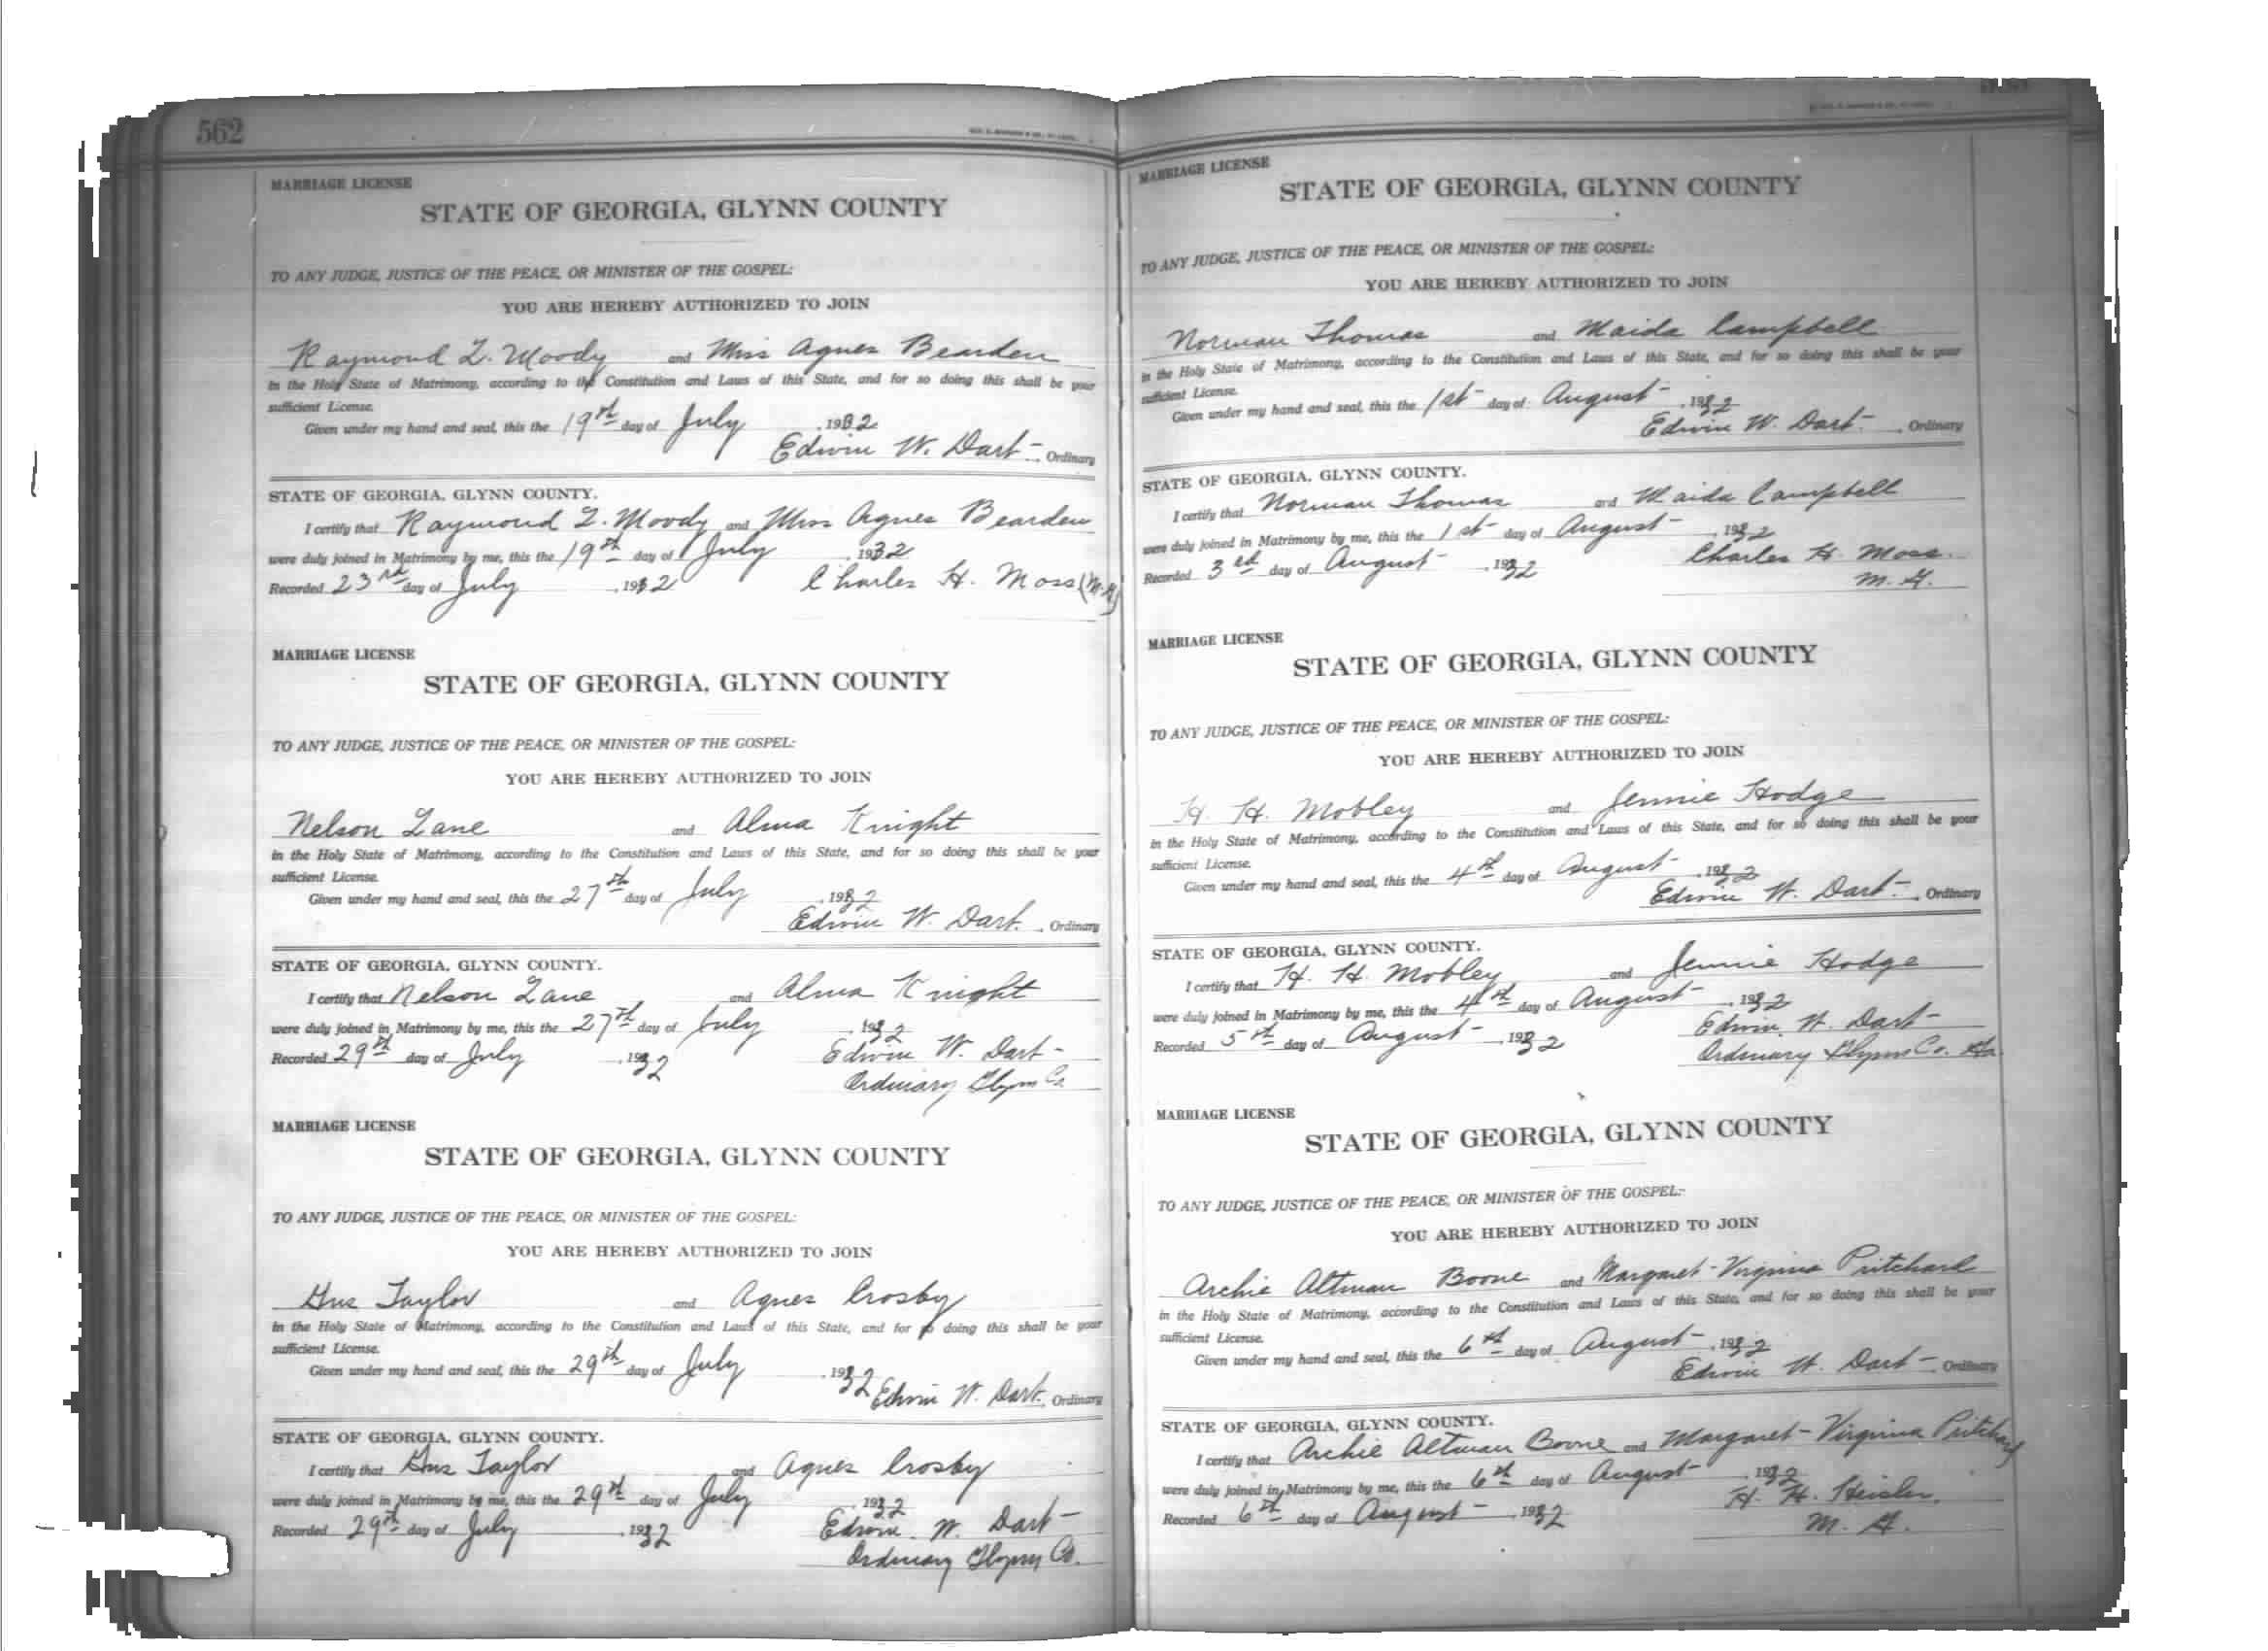 562
MARRIAGE LICENSE
STATE OF GEORGIA, GLYNN COUNTY
TO ANY JUDGE, JUSTICE OF THE PEACE, OR MINISTER OF THE GOSPEL:
YOU ARE HEREBY AUTHORIZED TO JOIN
Raymond L. Moody and Miss Agnes Bearden
in the Holy State of Matrimony, according to the Constitution and Laws of this State, and for so doing this shall be your
sufficient License.
Given under my hand and seal, this the 19th day of July, 1932
Edwin W. Dart, Ordinary
STATE OF GEORGIA, GLYNN COUNTY.
I certify that Raymond L. Moody and Miss Agnes Bearden
were duly joined in Matrimony by me, this the 19th day of July, 1932
Recorded 23rd day of July, 1932 Charles H. Moss (M.G.)
MARRIAGE LICENSE
STATE OF GEORGIA, GLYNN COUNTY
TO ANY JUDGE, JUSTICE OF THE PEACE, OR MINISTER OF THE GOSPEL:
YOU ARE HEREBY AUTHORIZED TO JOIN
Nelson Lane and Alma Knight
in the Holy State of Matrimony, according to the Constitution and Laws of this State, and for so doing this shall be your
sufficient License.
Given under my hand and seal, this the 27th day of July, 1932
Edwin W. Dart, Ordinary
STATE OF GEORGIA, GLYNN COUNTY.
I certify that Nelson Lane and Alma Knight
were duly joined in Matrimony by me, this the 27th day of July, 1932
Recorded 29th day of July, 1932 Edwin W. Dart
Ordinary Glynn Co
MARRIAGE LICENSE
STATE OF GEORGIA, GLYNN COUNTY
TO ANY JUDGE, JUSTICE OF THE PEACE, OR MINISTER OF THE GOSPEL:
YOU ARE HEREBY AUTHORIZED TO JOIN
Gus Taylor and Agnes Crosby
in the Holy State of Matrimony, according to the Constitution and Laws of this State, and for so doing this shall be your
sufficient License.
Given under my hand and seal, this the 29th day of July, 1932
Edwin W. Dart, Ordinary
STATE OF GEORGIA, GLYNN COUNTY.
I certify that Gus Taylor and Agnes Crosby
were duly joined in Matrimony by me, this the 29th day of July, 1932
Recorded 29th day of July, 1932 Edwin W. Dart
Ordinary Glynn Co.
MARRIAGE LICENSE
STATE OF GEORGIA, GLYNN COUNTY
TO ANY JUDGE, JUSTICE OF THE PEACE, OR MINISTER OF THE GOSPEL:
YOU ARE HEREBY AUTHORIZED TO JOIN
Norman Thomas and Maida Campbell
in the Holy State of Matrimony, according to the Constitution and Laws of this State, and for so doing this shall be your
sufficient License.
Given under my hand and seal, this the 1st day of August, 1932
Edwin W. Dart, Ordinary
STATE OF GEORGIA, GLYNN COUNTY.
I certify that Norman Thomas and Maida Campbell
were duly joined in Matrimony by me, this the 1st day of August, 1932
Recorded 3rd day of August, 1932 Charles H. Moss.
M. G.
MARRIAGE LICENSE
STATE OF GEORGIA, GLYNN COUNTY
TO ANY JUDGE, JUSTICE OF THE PEACE, OR MINISTER OF THE GOSPEL:
YOU ARE HEREBY AUTHORIZED TO JOIN
H. H. Mobley and Jennie Hodge
in the Holy State of Matrimony, according to the Constitution and Laws of this State, and for so doing this shall be your
sufficient License.
Given under my hand and seal, this the 4th day of August, 1932
Edwin W. Dart, Ordinary
STATE OF GEORGIA, GLYNN COUNTY.
I certify that H. H. Mobley and Jennie Hodge
were duly joined in Matrimony by me, this the 4th day of August, 1932
Recorded 5th day of August, 1932 Edwin W. Dart
Ordinary Glynn Co. Ga.
MARRIAGE LICENSE
STATE OF GEORGIA, GLYNN COUNTY
TO ANY JUDGE, JUSTICE OF THE PEACE, OR MINISTER OF THE GOSPEL:
YOU ARE HEREBY AUTHORIZED TO JOIN
Archie Altman Boone and Margaret Virginia Pritchard
in the Holy State of Matrimony, according to the Constitution and Laws of this State, and for so doing this shall be your
sufficient License.
Given under my hand and seal, this the 6th day of August, 1932
Edwin W. Dart, Ordinary
STATE OF GEORGIA, GLYNN COUNTY.
I certify that Archie Altman Boone and Margaret Virginia Pritchard
were duly joined in Matrimony by me, this the 6th day of August, 1932
Recorded 6th day of August, 1932 H. H. Heisler.
M. G.